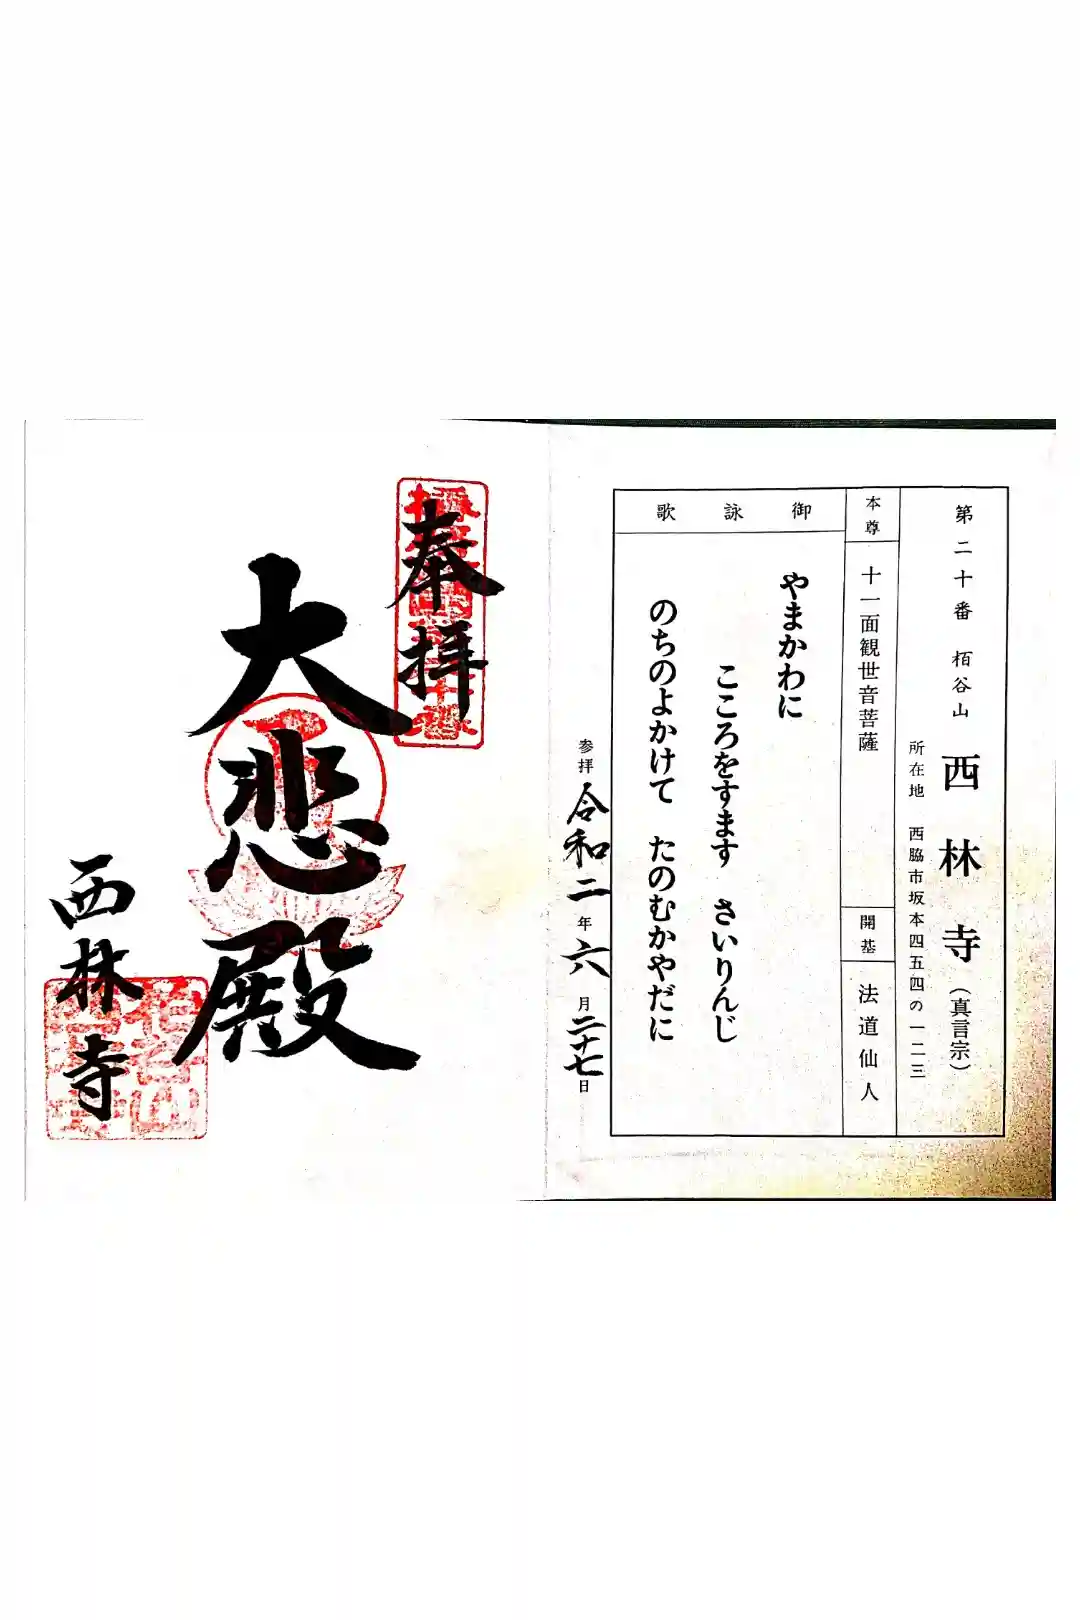 第二十番 栢谷山 西林寺(真言宗)
所在地 西脇市坂本四五四の一二三
本尊 十一面観世音菩薩
開基 法道仙人
御詠歌
やまかわに
こころをすます さいりんじ
のちのよかけて たのむかやだに
参拝 令和二年六月二十七日
奉拝
大悲殿
西林寺